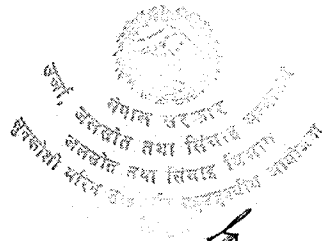 नेपाल सरकार
ऊर्जा, जलस्रोत तथा सिंचाइ मन्त्रालय
जलस्रोत तथा सिंचाइ विभाग
सुनकोशी मरिण डाइभर्सन बहुउद्देश्यीय आयोजना